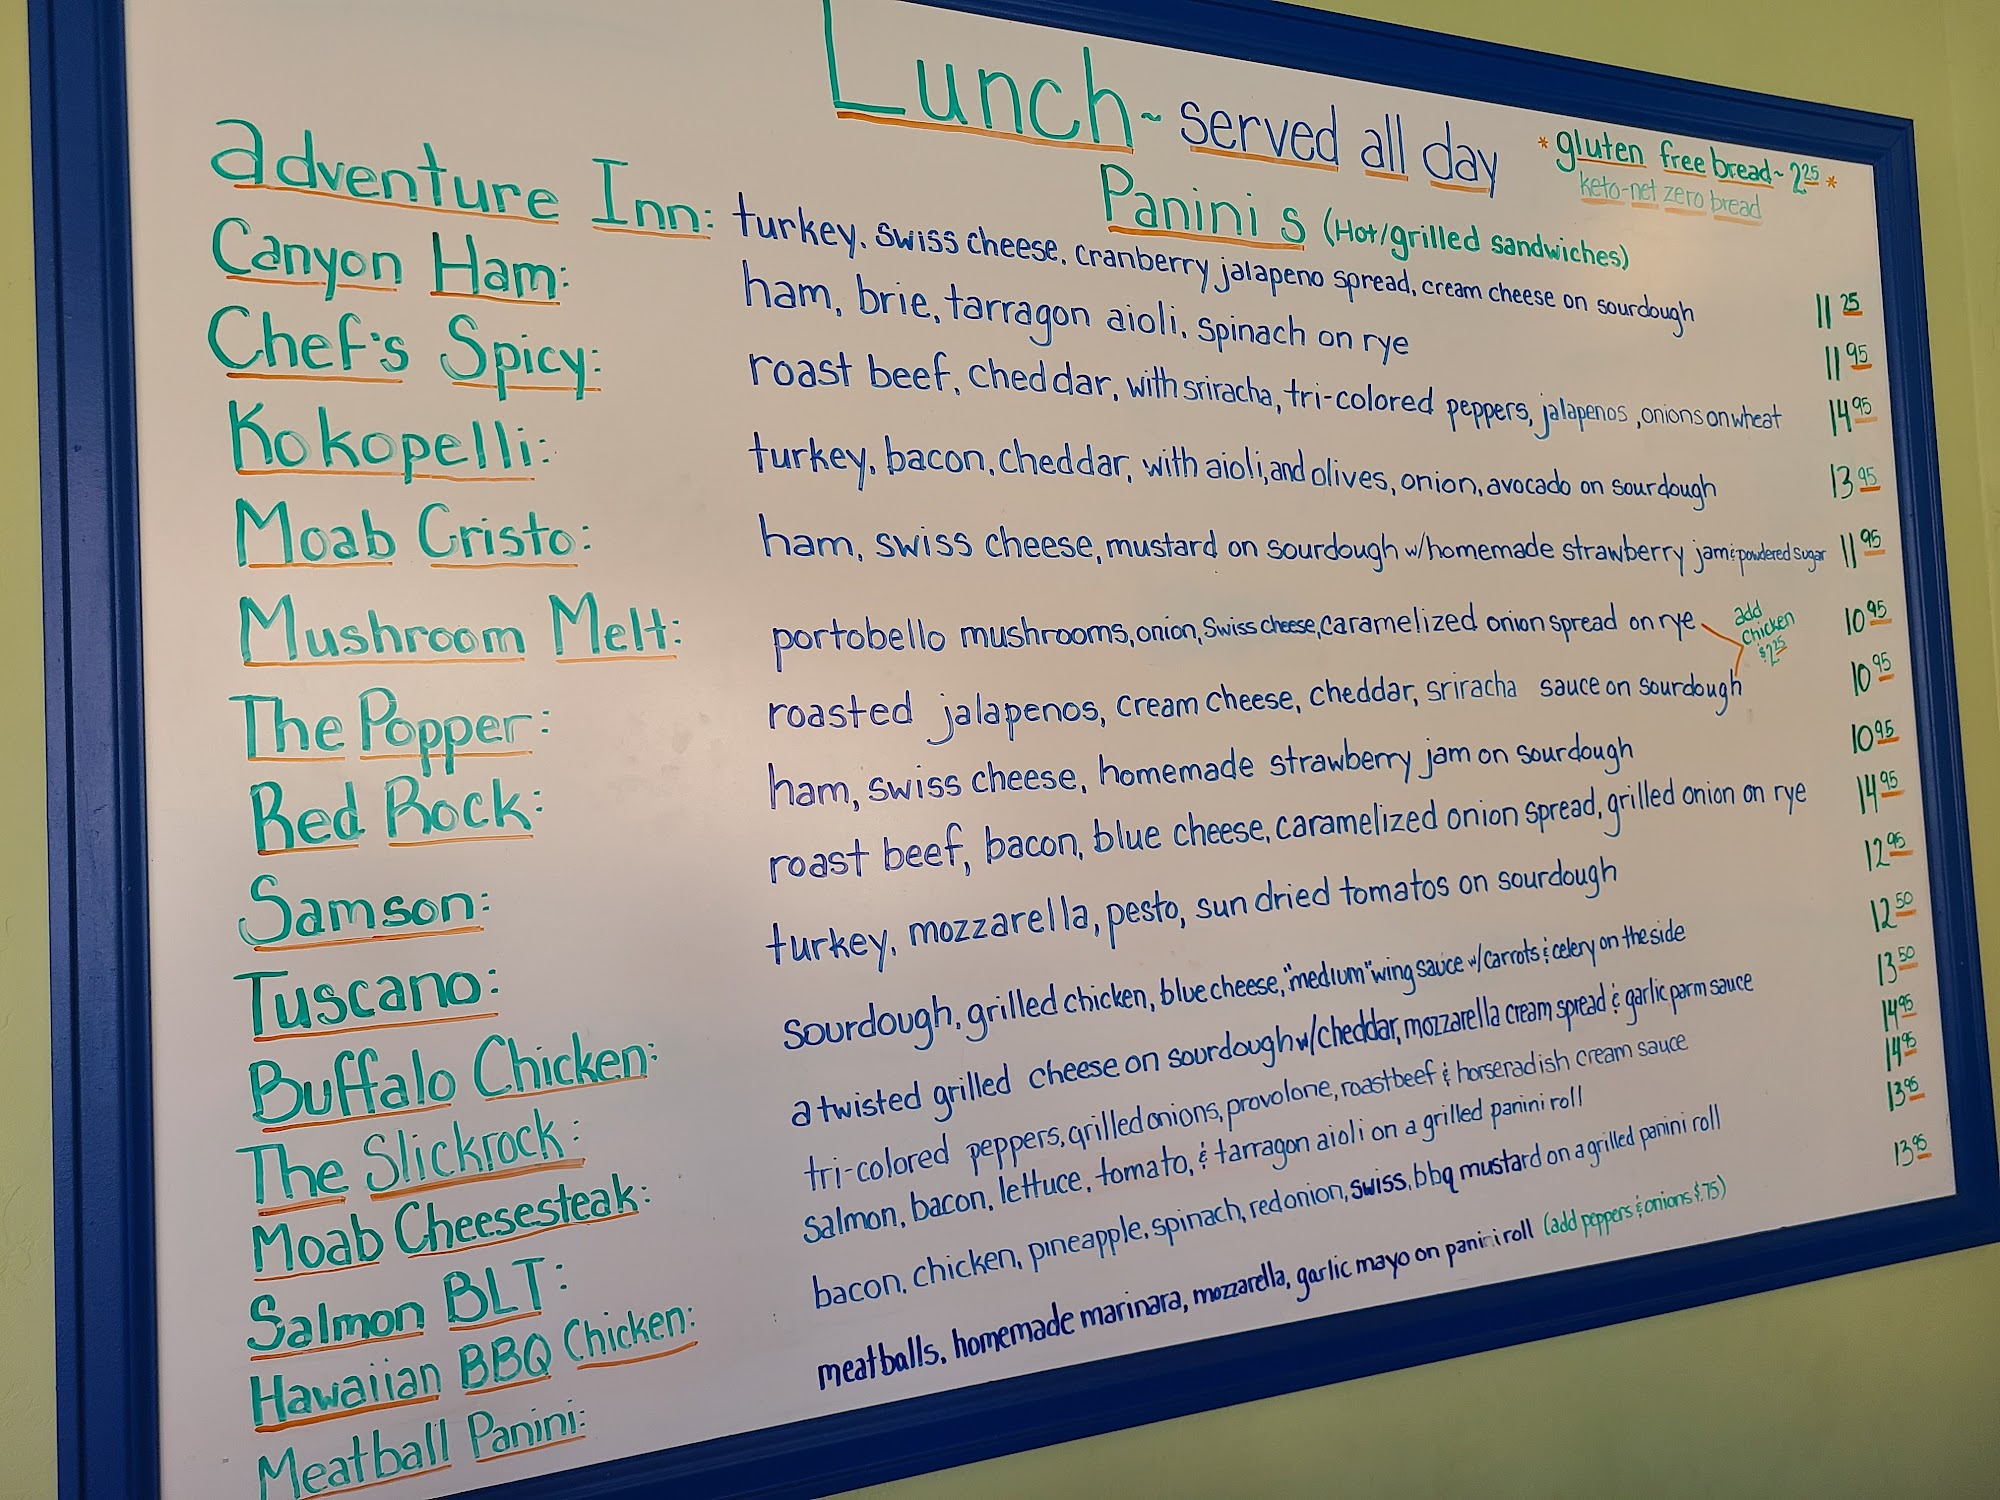 Lunch ~ served all day
*gluten free bread ~ 2.25*
keto-net zero bread
Panini s (Hot/grilled sandwiches)
adventure Inn: turkey, swiss cheese, cranberry jalapeno spread, cream cheese on sourdough 11.25
Canyon Ham: ham, brie, tarragon aioli, spinach on rye 11.95
Chef's Spicy: roast beef, cheddar, with sriracha, tri-colored peppers, jalapenos, onions on wheat 14.95
Kokopelli: turkey, bacon, cheddar, with aioli, and olives, onion, avocado on sourdough 13.95
Moab Cristo: ham, swiss cheese, mustard on sourdough w/homemade strawberry jam & powdered sugar 11.95
Mushroom Melt: portobello mushrooms, onion, Swiss cheese, caramelized onion spread on rye 10.95
add chicken $2.25
The Popper: roasted jalapenos, cream cheese, cheddar, sriracha sauce on sourdough 10.95
Red Rock: ham, swiss cheese, homemade strawberry jam on sourdough 10.95
Samson: roast beef, bacon, blue cheese, caramelized onion spread, grilled onion on rye 14.95
Tuscano: turkey, mozzarella, pesto, sun dried tomatos on sourdough 12.95
Buffalo Chicken: sourdough, grilled chicken, blue cheese, "medium" wing sauce w/carrots & celery on the side 12.50
The Slickrock: a twisted grilled cheese on sourdough w/cheddar, mozzarella cream spread & garlic parm sauce 13.50
Moab Cheesesteak: tri-colored peppers, grilled onions, provolone, roast beef & horseradish cream sauce 14.95
Salmon BLT: salmon, bacon, lettuce, tomato, & tarragon aioli on a grilled panini roll 14.95
Hawaiian BBQ Chicken: bacon, chicken, pineapple, spinach, red onion, swiss, bbq mustard on a grilled panini roll 13.95
Meatball Panini: meatballs, homemade marinara, mozzarella, garlic mayo on panini roll (add peppers & onions $.75) 13.95